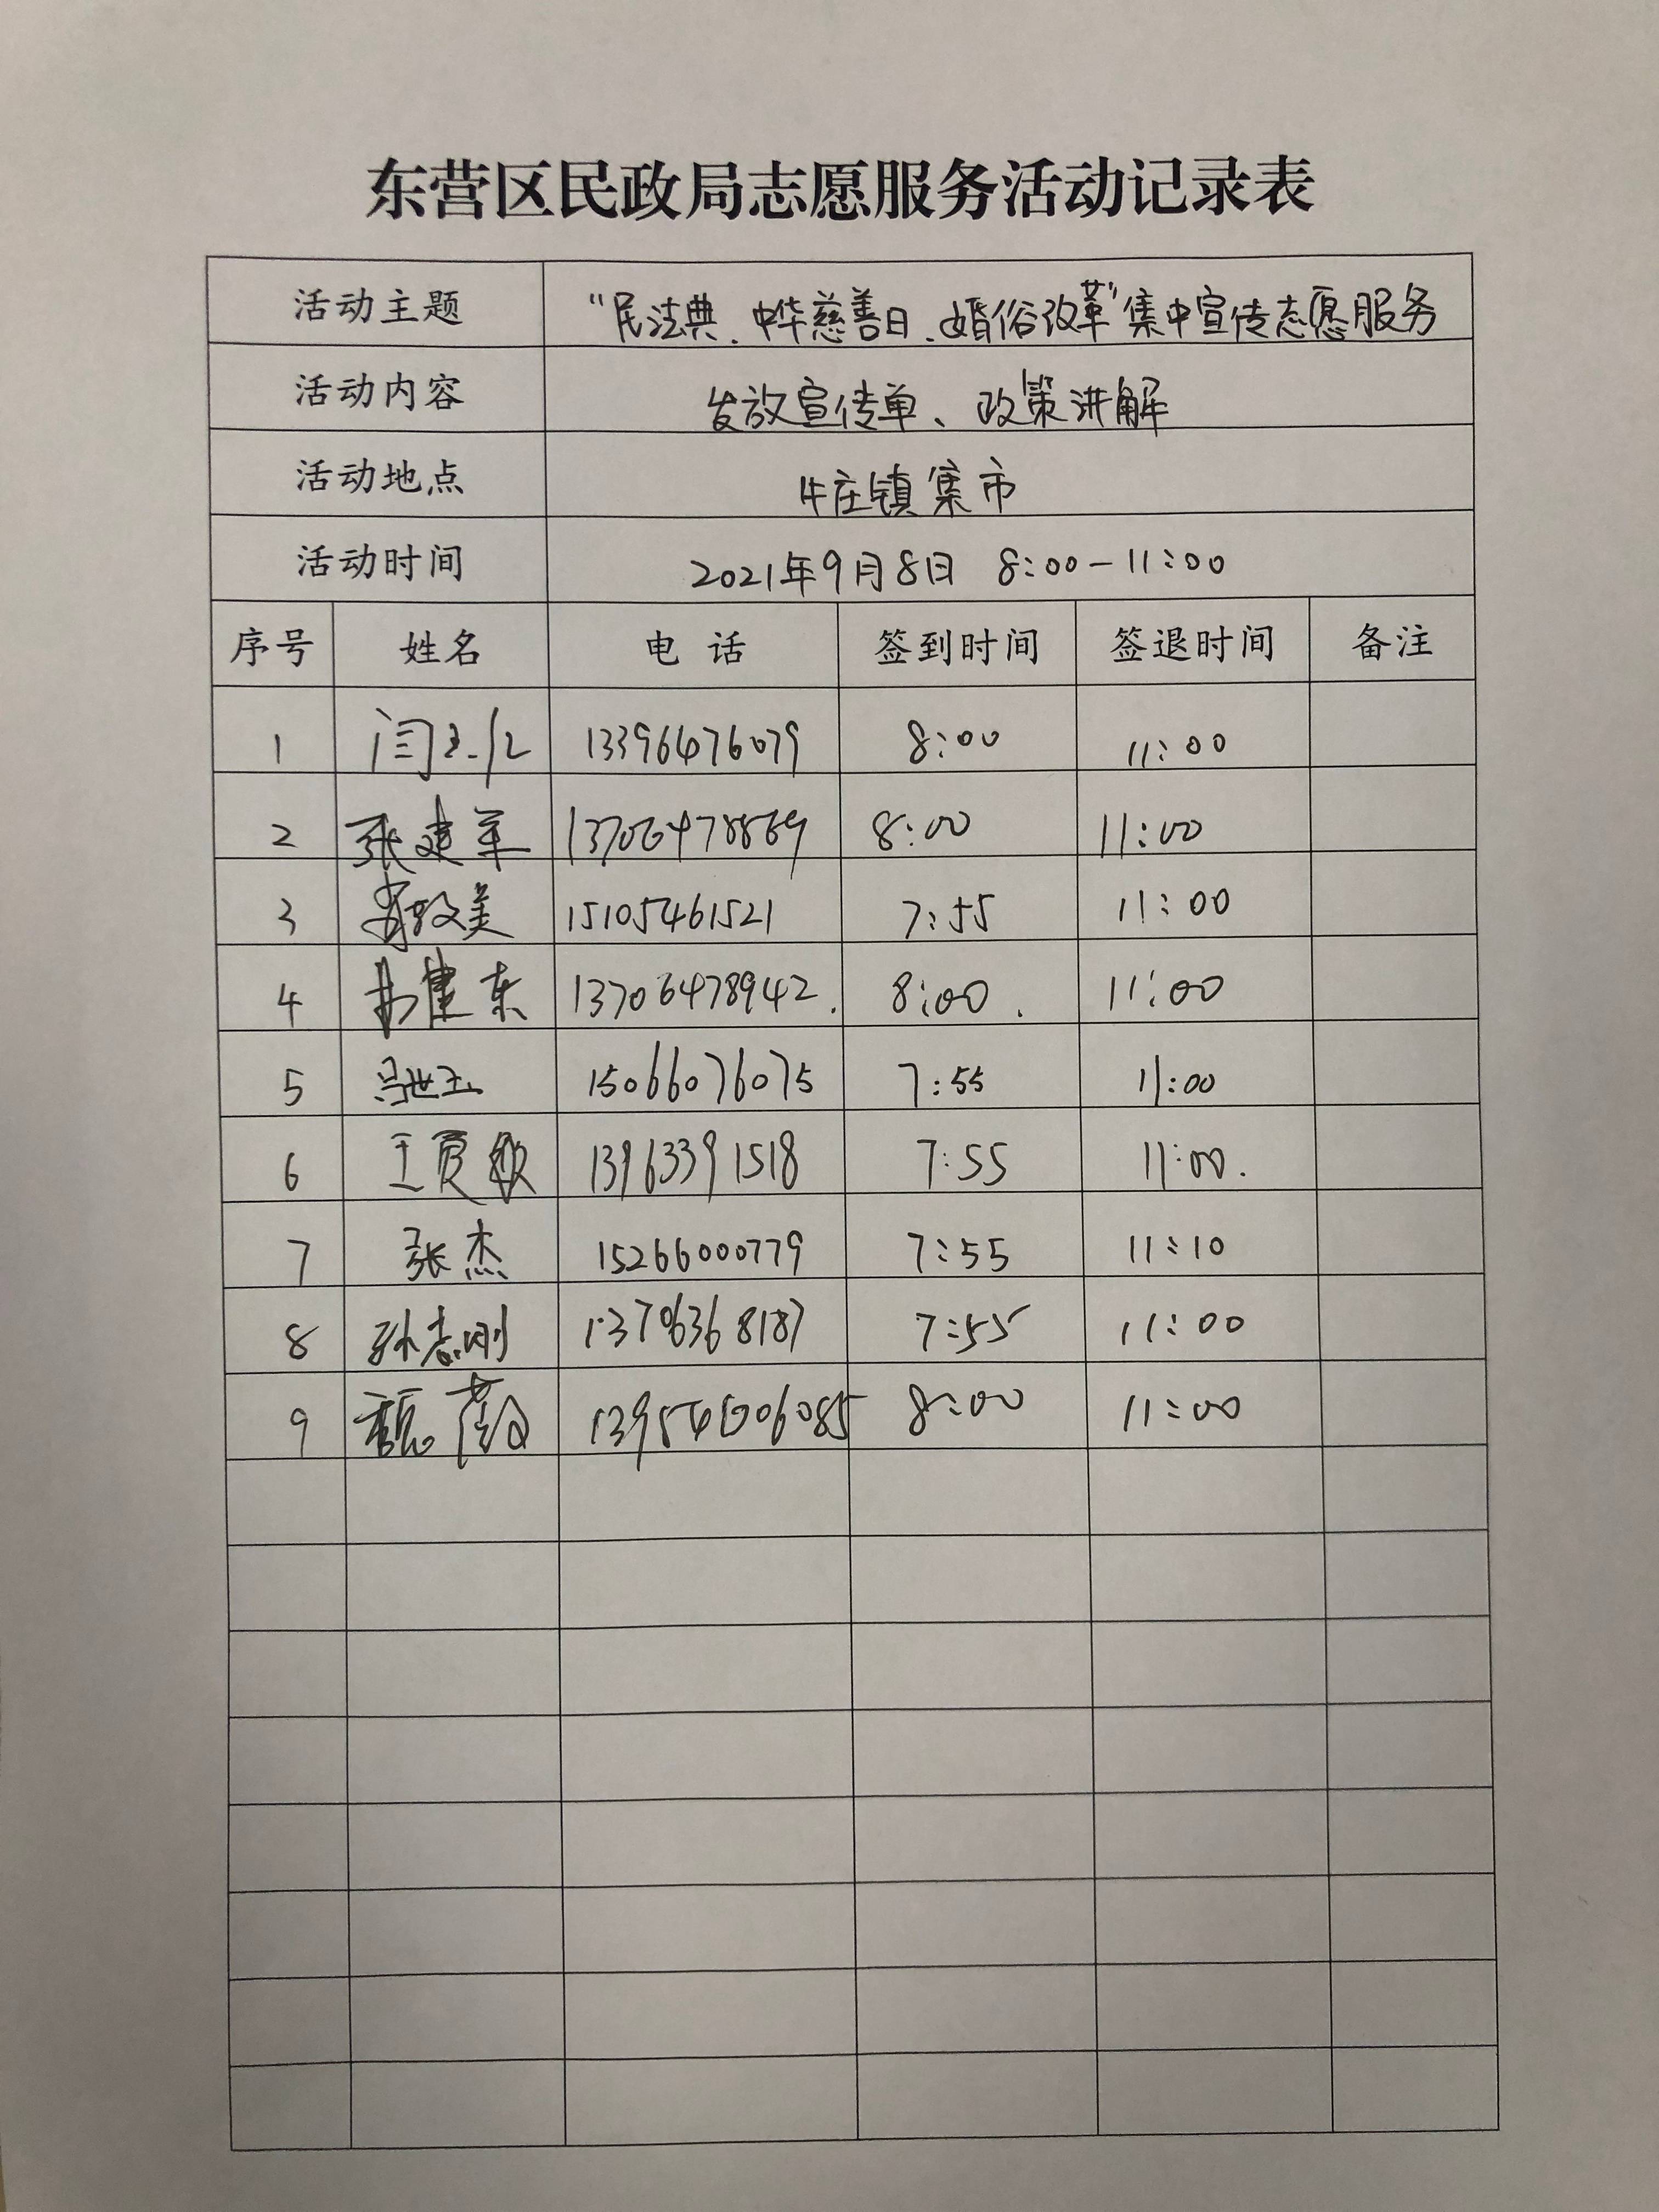 东营区民政局志愿服务活动记录表
活动主题 "民法典、中华慈善日、婚俗改革"集中宣传志愿服务
活动内容 发放宣传单、政策讲解
活动地点 牛庄镇集市
活动时间 2021年9月8日 8:00-11:00
序号 姓名 电话 签到时间 签退时间 备注
1 13396476079 8:00 11:00
2 张建军 13706478869 8:00 11:00
3 15105461521 7:55 11:00
4 13706478942. 8:00. 11:00
5 15066076075 7:55 11:00
6 王夏敏 13963391518 7:55 11:00.
7 张杰 15266000779 7:55 11:10
8 孙志刚 7:55 11:00
9 8:00 11:00